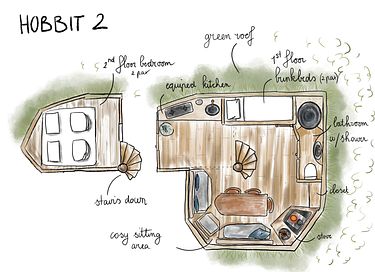 HOBBIT 2
green roof
2nd floor bedroom
2 pax
1st floor
bunkbeds (2 pax)
equiped kitchen
bathroom
w/ shower
closet
stairs down
stove
cosy sitting
area